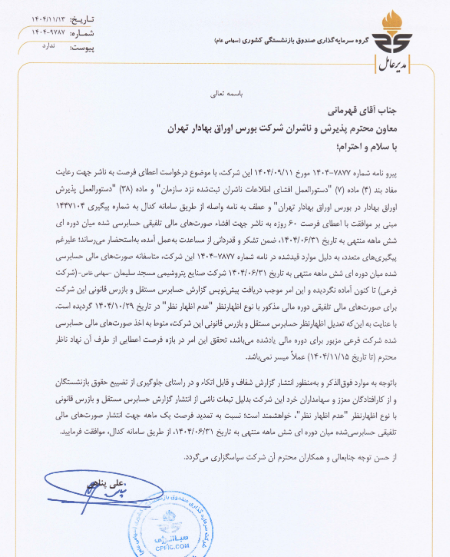 تاریخ: ۱۴۰۴/۱۱/۱۳
شماره: ۱۴۰۴-۹۷۸۷
پیوست: ندارد
گروه سرمایه‌گذاری صندوق بازنشستگی کشوری (سهامی عام)
مدیرعامل
باسمه تعالی
جناب آقای قهرمانی
معاون محترم پذیرش و ناشران شرکت بورس اوراق بهادار تهران
با سلام و احترام؛
پیرو نامه شماره ۷۸۷۷-۱۴۰۴ مورخ ۱۴۰۴/۰۹/۱۱ این شرکت، با موضوع درخواست اعطای فرصت به ناشر جهت رعایت
مفاد بند (۴) ماده (۷) "دستورالعمل افشای اطلاعات ناشران ثبت‌شده نزد سازمان" و ماده (۳۸) "دستورالعمل پذیرش
اوراق بهادار در بورس اوراق بهادار تهران" و عطف به نامه واصله از طریق سامانه کدال به شماره پیگیری ۱۴۳۷۱۰۴
مبنی بر موافقت با اعطای فرصت ۶۰ روزه به ناشر جهت افشاء صورت‌های مالی تلفیقی حسابرسی شده میان دوره ای
شش ماهه منتهی به تاریخ ۱۴۰۴/۰۶/۳۱، ضمن تشکر و قدردانی از مساعدت به‌عمل آمده، به‌استحضار می‌رساند؛ علیرغم
پیگیری‌های متعدد، به دلیل موارد قیدشده در نامه شماره ۷۸۷۷-۱۴۰۴ این شرکت، متاسفانه صورت‌های مالی حسابرسی
شده میان دوره ای شش ماهه منتهی به تاریخ ۱۴۰۴/۰۶/۳۱ شرکت صنایع پتروشیمی مسجد سلیمان -سهامی خاص-(شرکت
فرعی) تا کنون آماده نگردیده و این امر موجب دریافت پیش‌نویس گزارش حسابرس مستقل و بازرس قانونی این شرکت
برای صورت‌های مالی تلفیقی دوره مالی مذکور با نوع اظهارنظر "عدم اظهار نظر" در تاریخ ۱۴۰۴/۱۰/۲۹ گردیده است.
با عنایت به این‌که تعدیل اظهارنظر حسابرس مستقل و بازرس قانونی این شرکت، منوط به اخذ صورت‌های مالی حسابرسی
شده شرکت فرعی مزبور برای دوره مالی یادشده می‌باشد، تحقق این امر در بازه فرصت اعطایی از طرف آن نهاد ناظر
محترم (تا تاریخ ۱۴۰۴/۱۱/۱۵) عملاً میسر نمی‌باشد.
باتوجه به موارد فوق‌الذکر و به‌منظور انتشار گزارش شفاف و قابل اتکاء و در راستای جلوگیری از تضییع حقوق بازنشستگان
و از کارافتادگان معزز و سهامداران خرد این شرکت بدلیل تبعات ناشی از انتشار گزارش حسابرس مستقل و بازرس قانونی
با نوع اظهارنظر "عدم اظهار نظر"، خواهشمند است؛ نسبت به تمدید فرصت یک ماهه جهت انتشار صورت‌های مالی
تلفیقی حسابرسی‌شده میان دوره ای شش ماهه منتهی به تاریخ ۱۴۰۴/۰۶/۳۱، از طریق سامانه کدال، موافقت فرمایید.
از حسن توجه جنابعالی و همکاران محترم آن شرکت سپاسگزاری می‌گردد.
علی